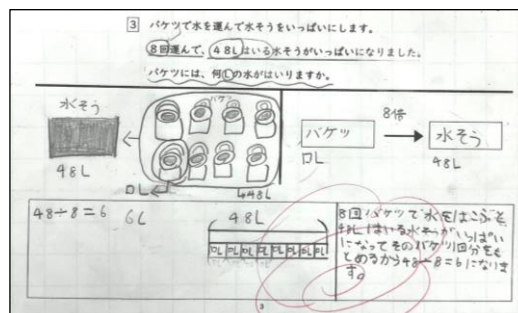 3 バケツで水を運んで水そうをいっぱいにします。
8回運んで、48Lはいる水そうがいっぱいになりました。
バケツには、何Lの水がはいりますか。
水そう
48L
バケツ
□L
48L
バケツ
□L
8倍
水そう
48L
48÷8=6 6L
48L
□L □L □L □L □L □L □L □L
8回バケツで水をはこぶと
48Lはいる水そうがいっぱい
になってそのバケツ1回分をも
とめるから48÷8=6になりま
す。
3